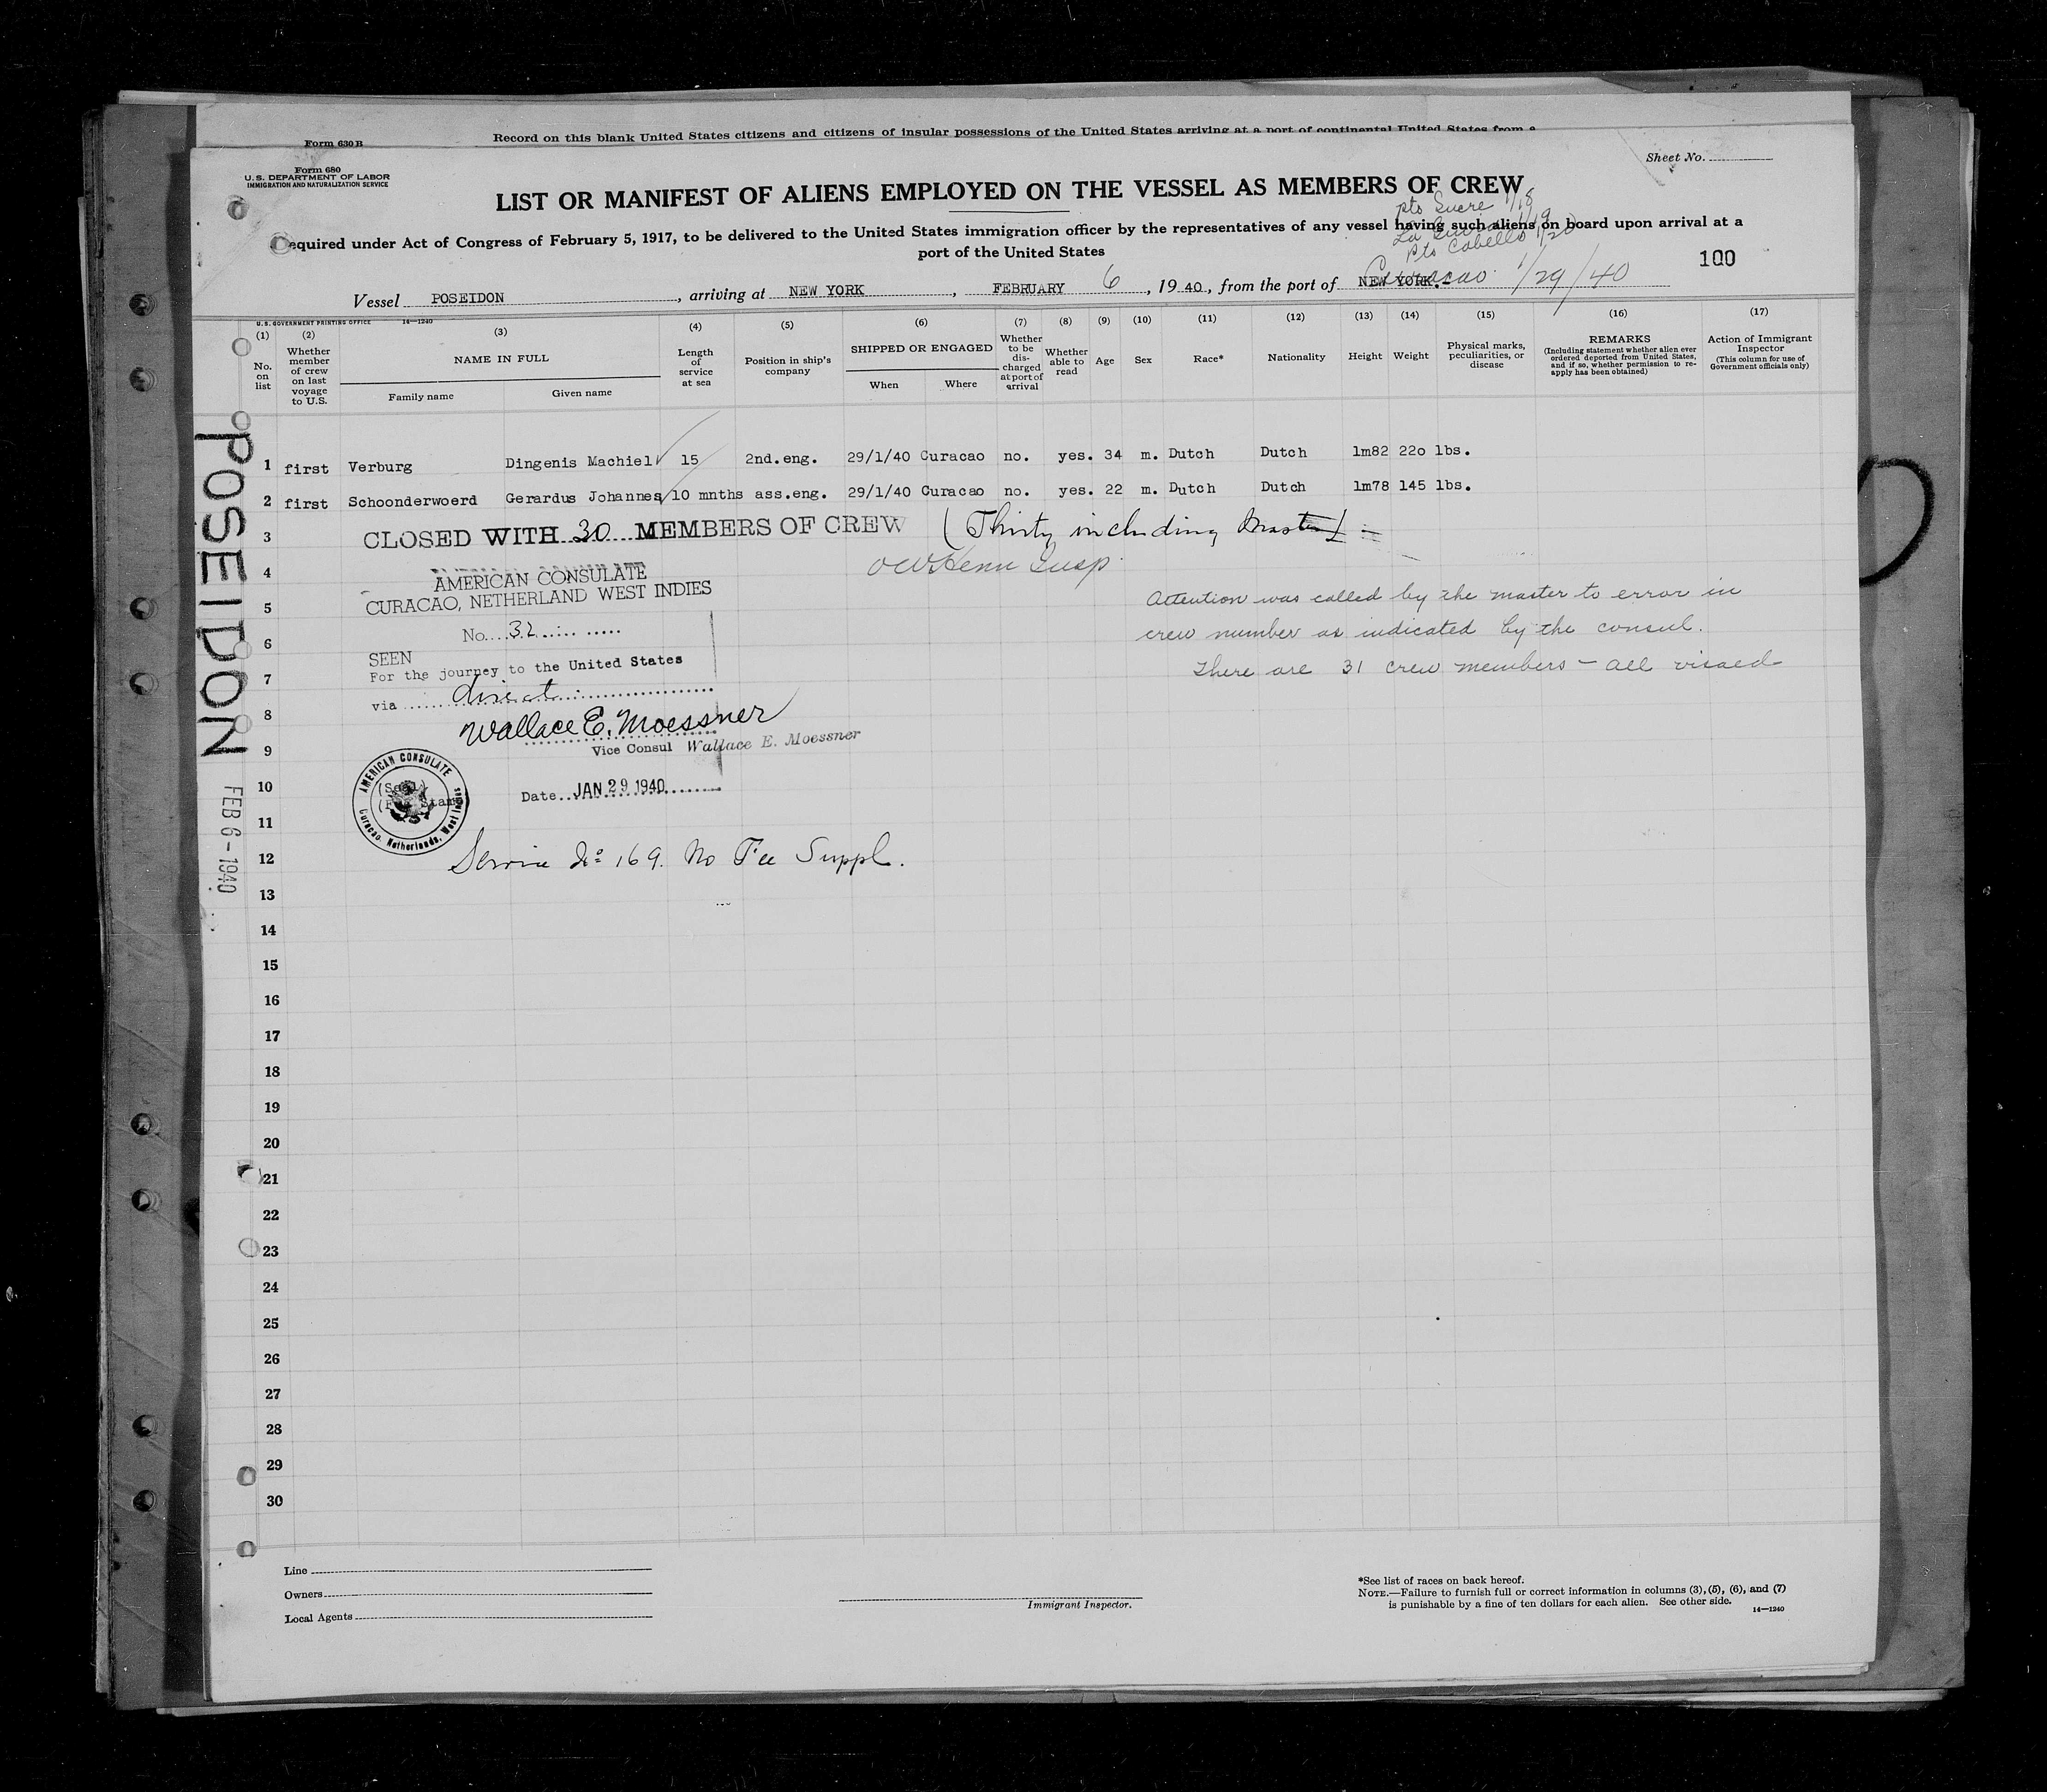 Form 630 B
Record on this blank United States citizens and citizens of insular possessions of the United States arriving at a port of continental United States from a
Form 680
U. S. DEPARTMENT OF LABOR
IMMIGRATION AND NATURALIZATION SERVICE
Sheet No.
LIST OR MANIFEST OF ALIENS EMPLOYED ON THE VESSEL AS MEMBERS OF CREW
pto Sucre 1/18
La Guira 1/19
Pto Cabello 1/20
equired under Act of Congress of February 5, 1917, to be delivered to the United States immigration officer by the representatives of any vessel having such aliens on board upon arrival at a
port of the United States
100
Vessel POSEIDON, arriving at NEW YORK, FEBRUARY 6, 1940, from the port of NEW YORK. Curacao 1/29/40
U. S. GOVERNMENT PRINTING OFFICE 14—1240
(1) (2) (3) (4) (5) (6) (7) (8) (9) (10) (11) (12) (13) (14) (15) (16) (17)
No. on list
Whether member of crew on last voyage to U.S.
NAME IN FULL
Family name
Given name
Length of service at sea
Position in ship's company
SHIPPED OR ENGAGED
When
Where
Whether to be discharged at port of arrival
Whether able to read
Age
Sex
Race*
Nationality
Height
Weight
Physical marks, peculiarities, or disease
REMARKS
(Including statement whether alien ever ordered deported from United States, and if so, whether permission to re-apply has been obtained)
Action of Immigrant Inspector
(This column for use of Government officials only)
1 first Verburg Dingenis Machiel 15 2nd.eng. 29/1/40 Curacao no. yes. 34 m. Dutch Dutch 1m82 220 lbs.
2 first Schoonderwoerd Gerardus Johannes 10 mnths ass.eng. 29/1/40 Curacao no. yes. 22 m. Dutch Dutch 1m78 145 lbs.
3 CLOSED WITH 30 MEMBERS OF CREW (Thirty including Master)
4 AMERICAN CONSULATE
5 CURACAO, NETHERLAND WEST INDIES
Attention was called by the master to error in
No. 32
6 crew number as indicated by the consul.
SEEN
For the journey to the United States
7 There are 31 crew members — all visaed
via direct
8 Wallace E. Moessner
9 Vice Consul Wallace E. Moessner
10 Date JAN 29 1940
AMERICAN CONSULATE
Curacao, Netherlands, West Indies
(Seal)
(Fee Stamp
11
12 Service No 169. No Fee Suppl.
13
14
15
16
17
18
19
20
21
22
23
24
25
26
27
28
29
30
POSEIDON
FEB 6-1940
Line
Owners
Local Agents
Immigrant Inspector.
*See list of races on back hereof.
NOTE.—Failure to furnish full or correct information in columns (3), (5), (6), and (7)
is punishable by a fine of ten dollars for each alien. See other side.
14—1240